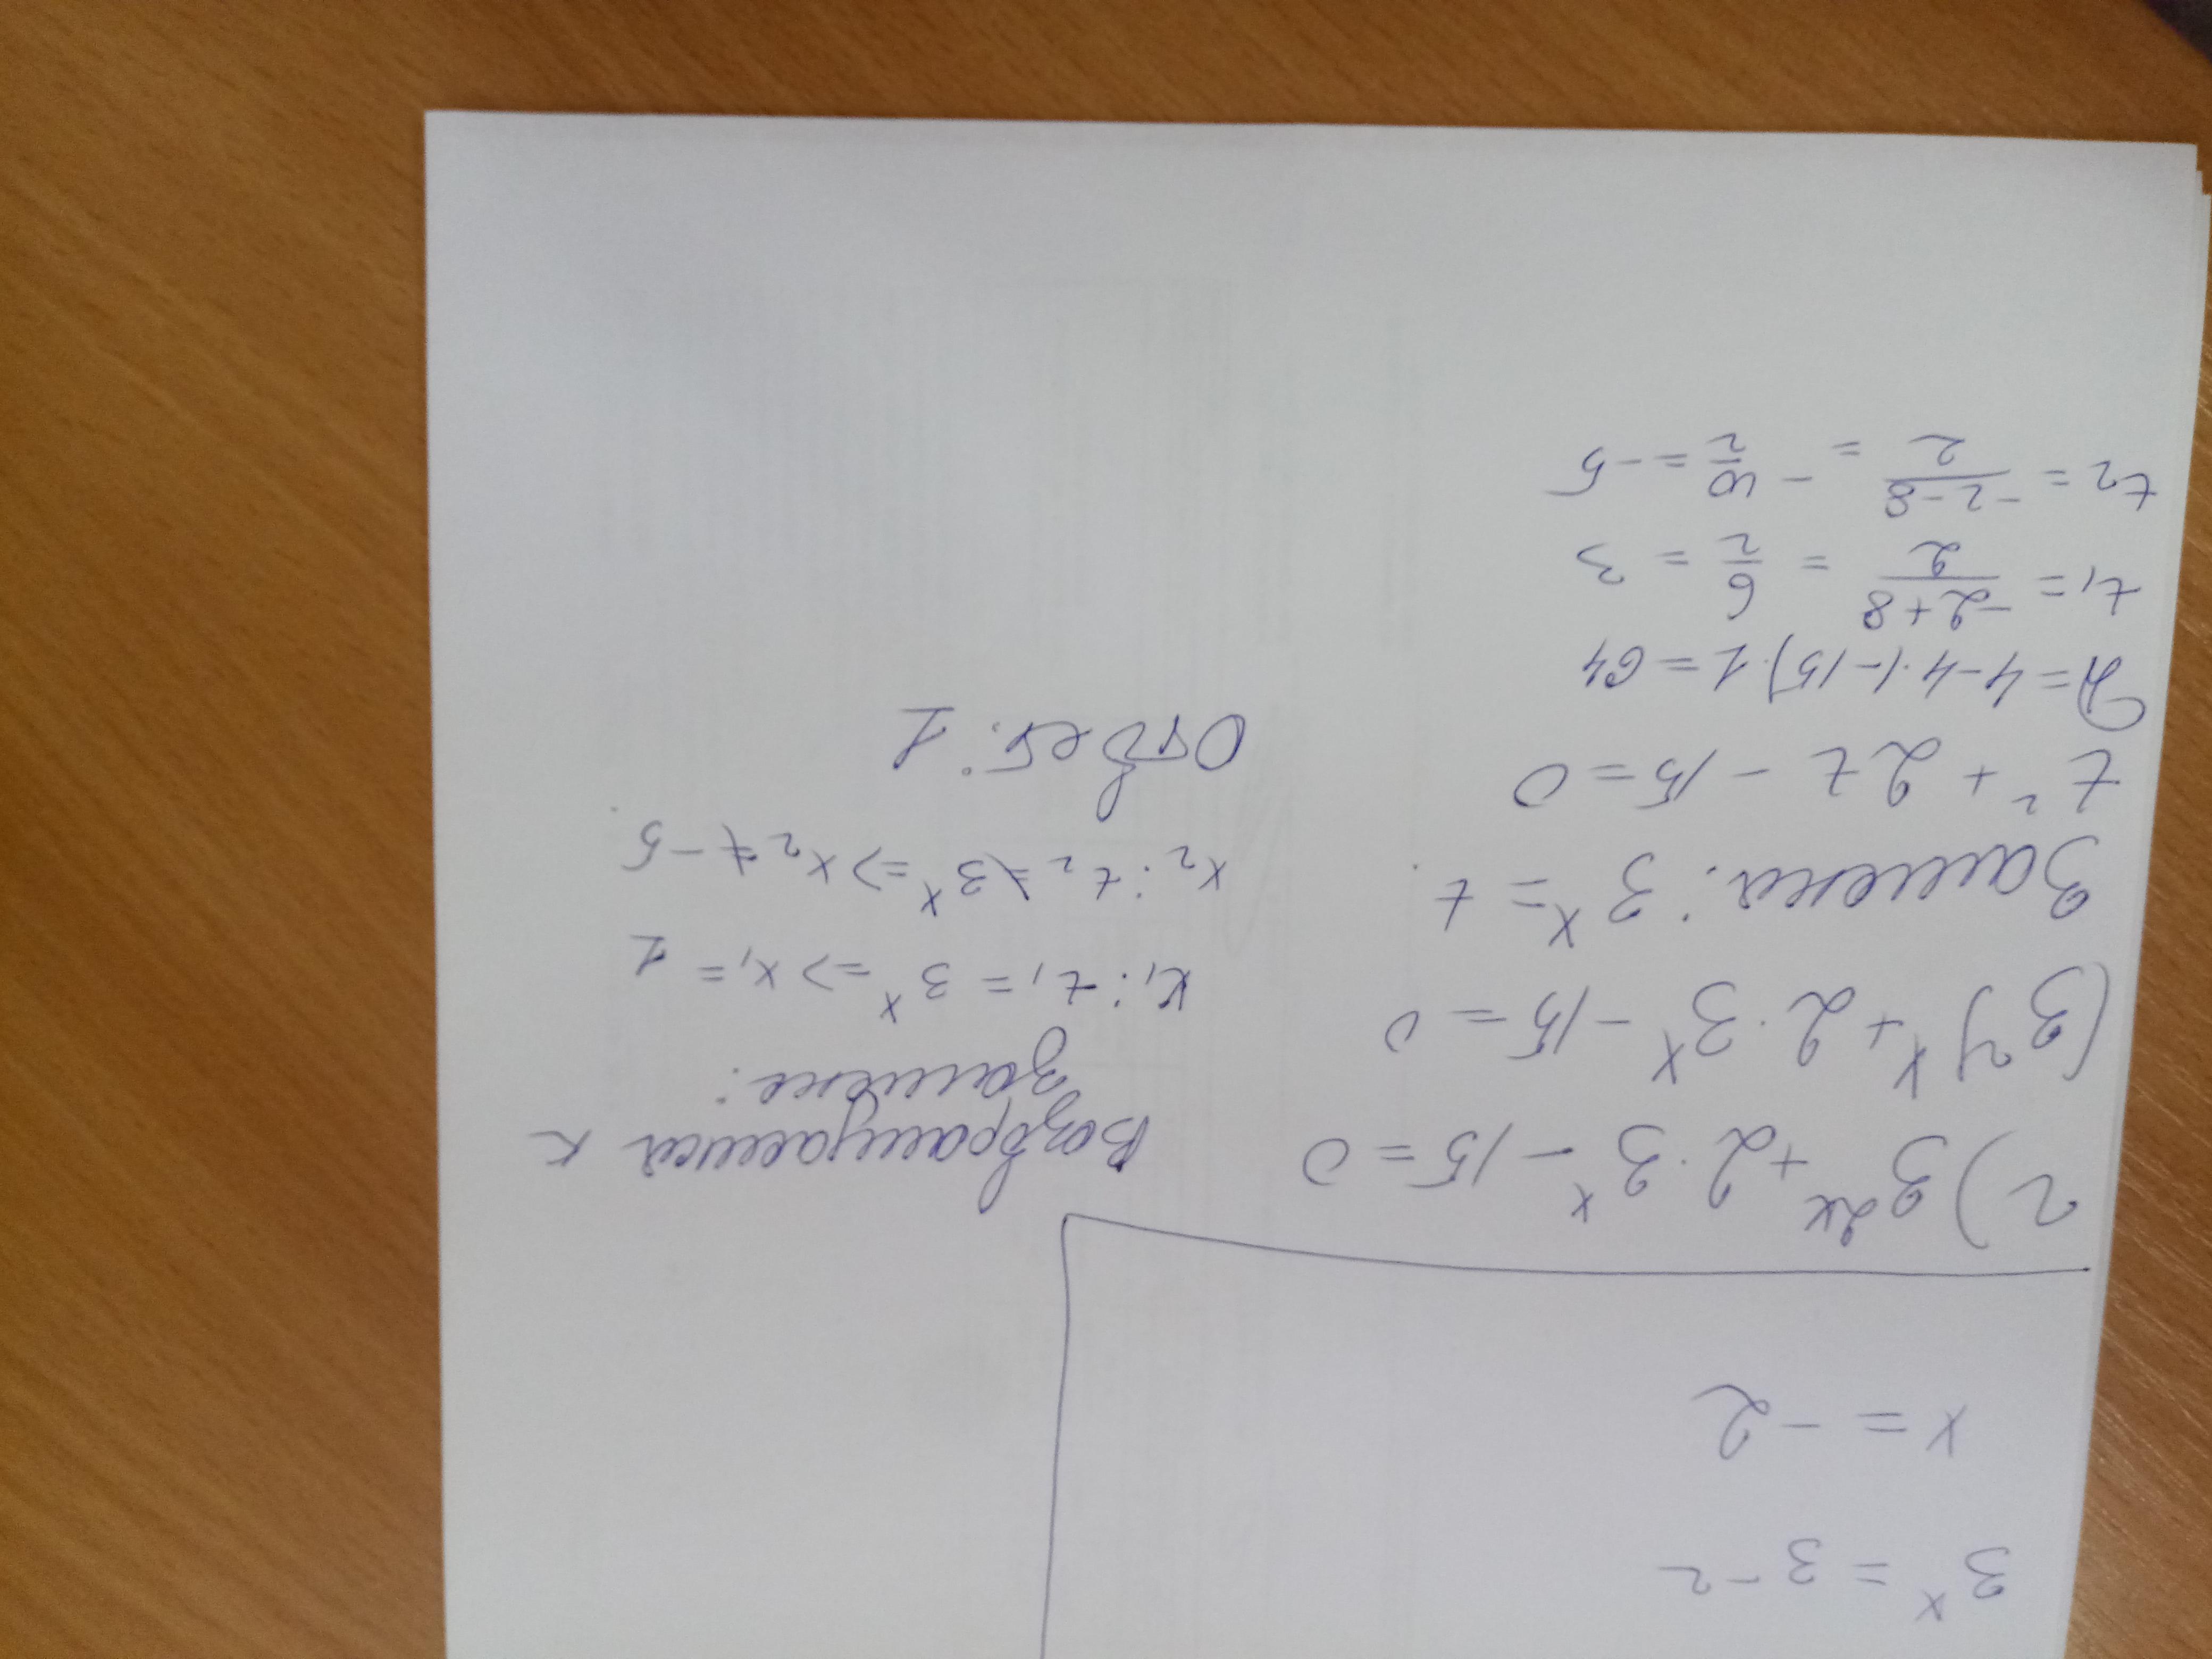 3^x = 3^-2
x = -2
2) 3^2x + 2·3^x - 15 = 0
(3^2)^x + 2·3^x - 15 = 0
Замена: 3^x = t
t^2 + 2t - 15 = 0
D = 4 - 4·(-15)·1 = 64
t1 = (-2+8)/2 = 6/2 = 3
t2 = (-2-8)/2 = -10/2 = -5
Возвращаемся к
замене:
x1: t1 = 3^x => x1 = 1
x2: t2 ≠ 3^x => x2 ≠ -5
Ответ: 1